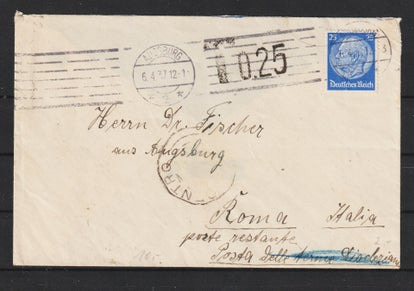 AUGSBURG
6.4.37.12-1
2
0.25
25 25
Deutsches Reich
Herrn Dr. Fischer
aus Augsburg
NTRO
Roma Italia
poste restante
Posta delle terme Diocleziane